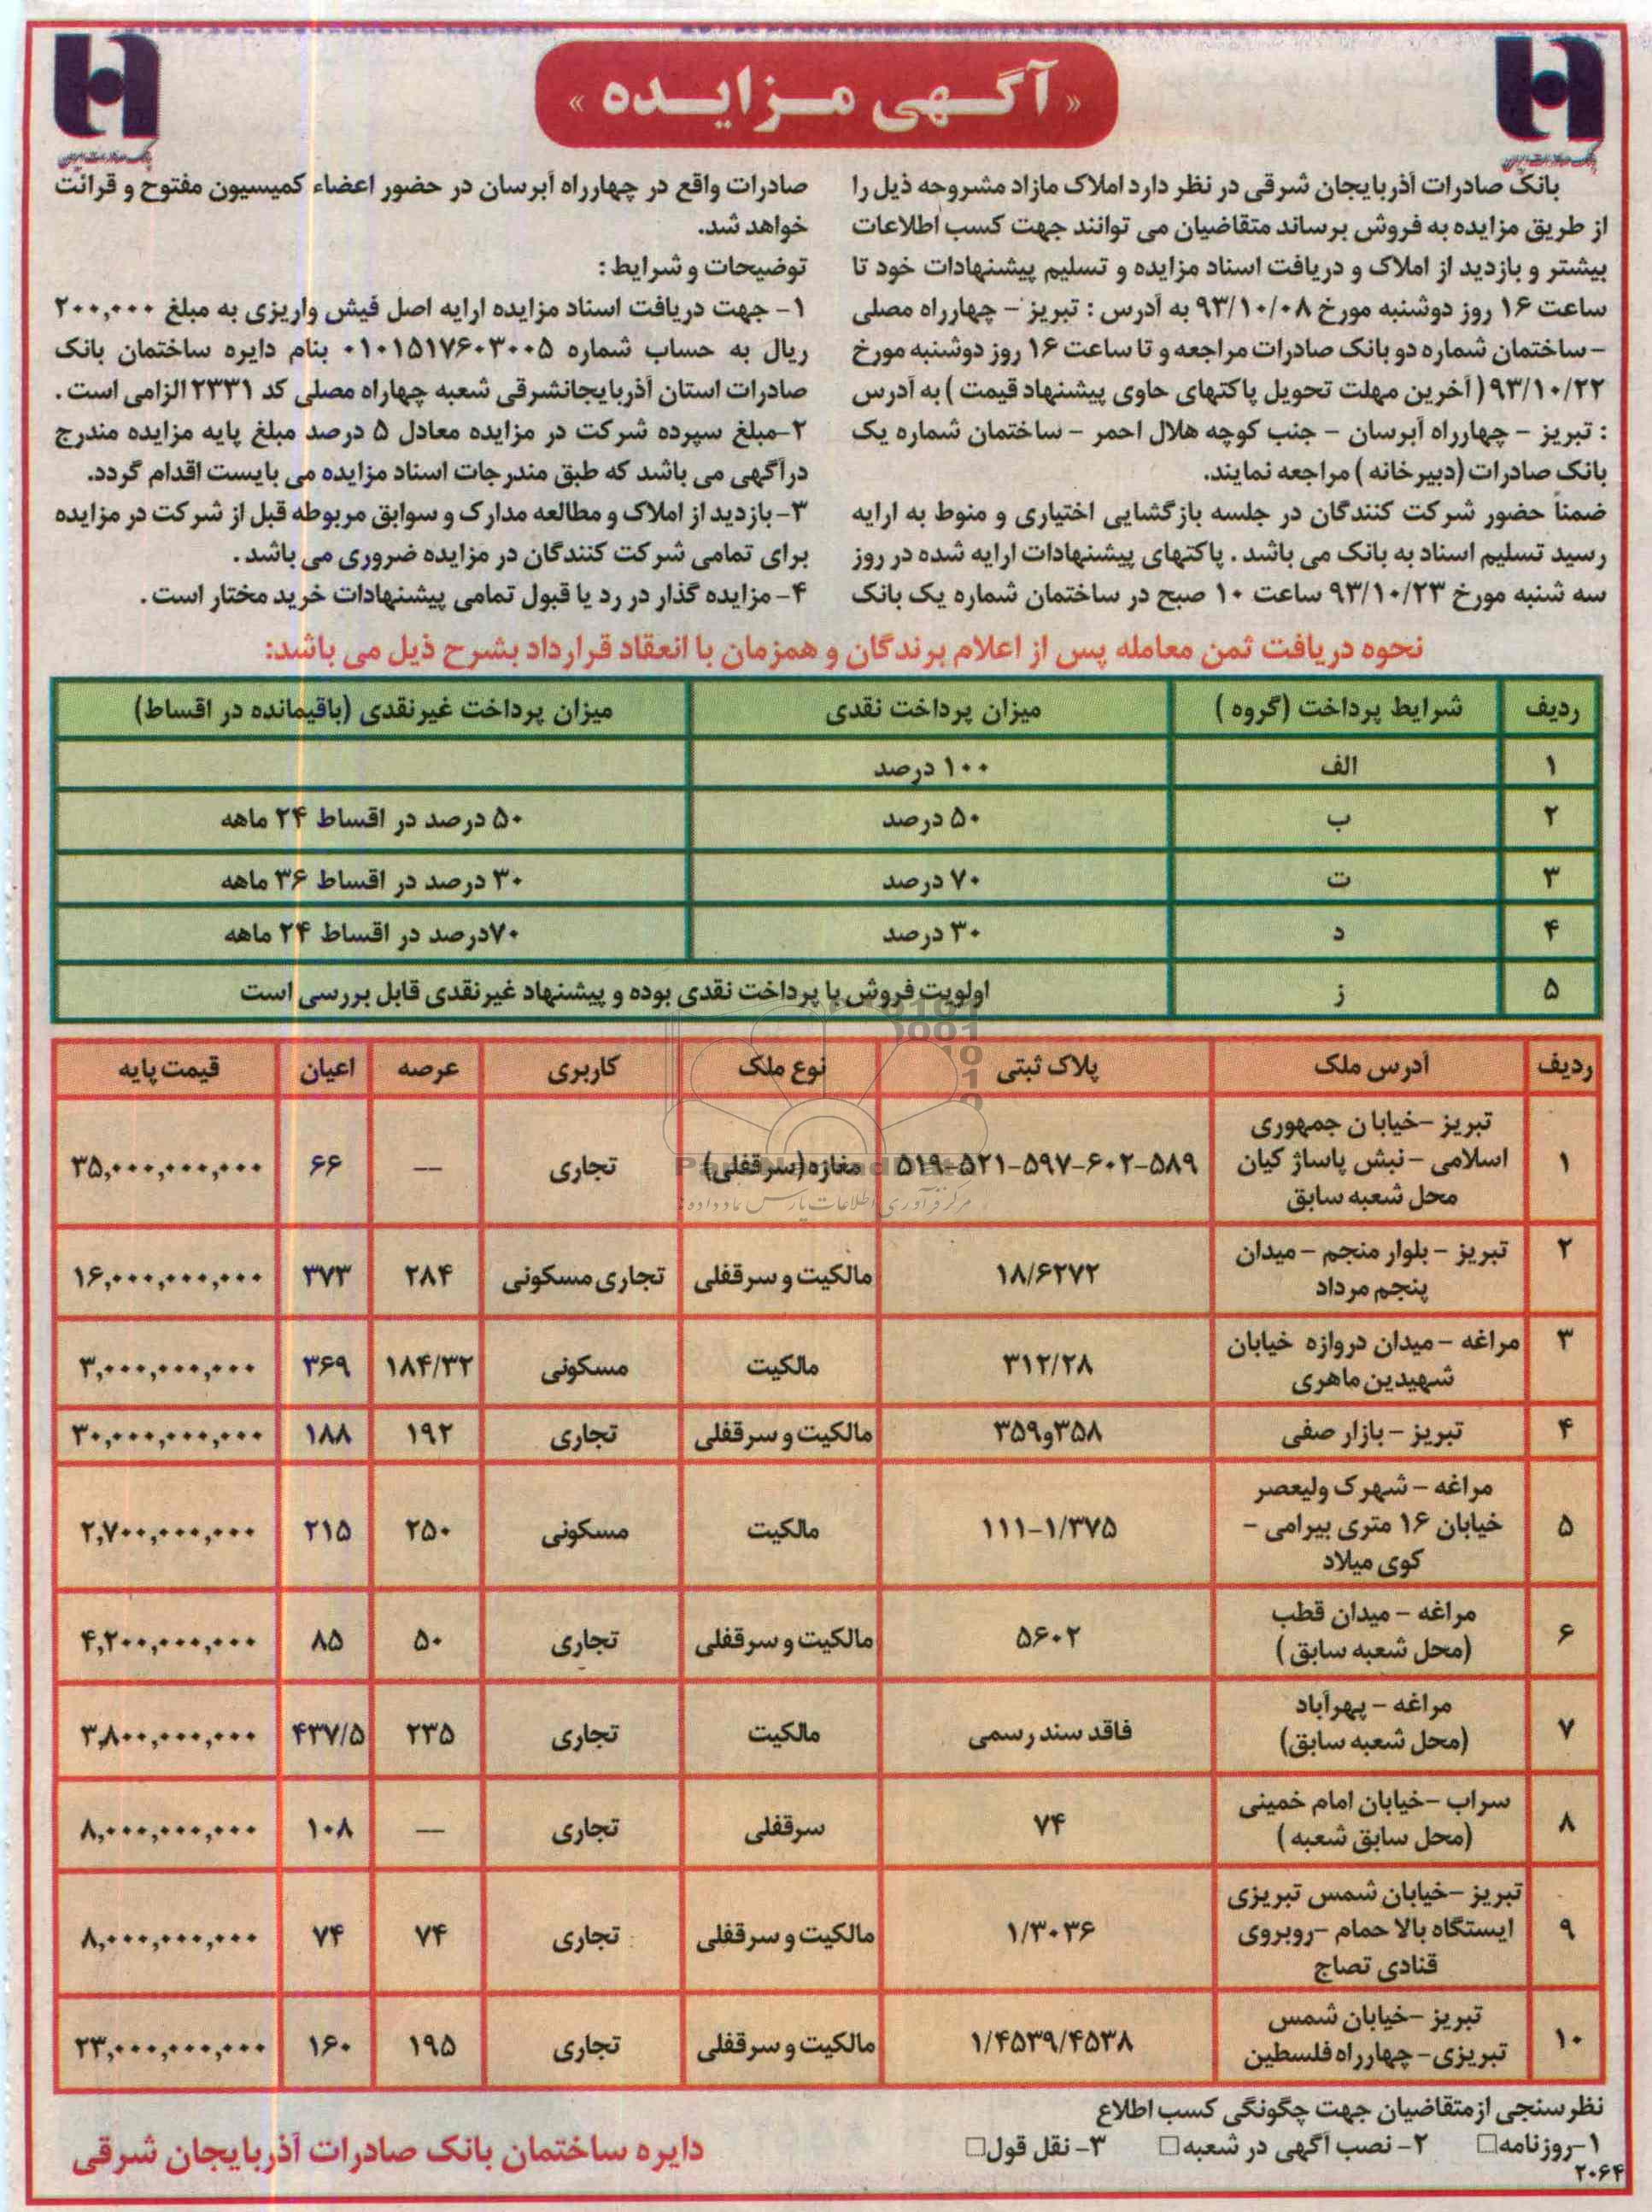 « آگهی مزایده »
بانک صادرات ایران
بانک صادرات ایران
بانک صادرات آذربایجان شرقی در نظر دارد املاک مازاد مشروحه ذیل را
از طریق مزایده به فروش برساند متقاضیان می توانند جهت کسب اطلاعات
بیشتر و بازدید از املاک و دریافت اسناد مزایده و تسلیم پیشنهادات خود تا
ساعت ۱۶ روز دوشنبه مورخ ۹۳/۱۰/۰۸ به آدرس : تبریز - چهارراه مصلی
- ساختمان شماره دو بانک صادرات مراجعه و تا ساعت ۱۶ روز دوشنبه مورخ
۹۳/۱۰/۲۲ ( آخرین مهلت تحویل پاکتهای حاوی پیشنهاد قیمت ) به آدرس
: تبریز - چهارراه آبرسان - جنب کوچه هلال احمر - ساختمان شماره یک
بانک صادرات (دبیرخانه ) مراجعه نمایند.
ضمناً حضور شرکت کنندگان در جلسه بازگشایی اختیاری و منوط به ارایه
رسید تسلیم اسناد به بانک می باشد . پاکتهای پیشنهادات ارایه شده در روز
سه شنبه مورخ ۹۳/۱۰/۲۳ ساعت ۱۰ صبح در ساختمان شماره یک بانک
صادرات واقع در چهارراه آبرسان در حضور اعضاء کمیسیون مفتوح و قرائت
خواهد شد.
توضیحات و شرایط :
۱- جهت دریافت اسناد مزایده ارایه اصل فیش واریزی به مبلغ ۲۰۰,۰۰۰
ریال به حساب شماره ۰۱۰۱۵۱۷۶۰۳۰۰۵ بنام دایره ساختمان بانک
صادرات استان آذربایجانشرقی شعبه چهاراه مصلی کد ۲۳۳۱ الزامی است .
۲-مبلغ سپرده شرکت در مزایده معادل ۵ درصد مبلغ پایه مزایده مندرج
درآگهی می باشد که طبق مندرجات اسناد مزایده می بایست اقدام گردد.
۳- بازدید از املاک و مطالعه مدارک و سوابق مربوطه قبل از شرکت در مزایده
برای تمامی شرکت کنندگان در مزایده ضروری می باشد .
۴- مزایده گذار در رد یا قبول تمامی پیشنهادات خرید مختار است .
نحوه دریافت ثمن معامله پس از اعلام برندگان و همزمان با انعقاد قرارداد بشرح ذیل می باشد:
ردیف شرایط پرداخت (گروه ) میزان پرداخت نقدی میزان پرداخت غیرنقدی (باقیمانده در اقساط)
۱ الف ۱۰۰ درصد
۲ ب ۵۰ درصد ۵۰ درصد در اقساط ۲۴ ماهه
۳ ت ۷۰ درصد ۳۰ درصد در اقساط ۳۶ ماهه
۴ د ۳۰ درصد ۷۰درصد در اقساط ۲۴ ماهه
۵ ز اولویت فروش با پرداخت نقدی بوده و پیشنهاد غیرنقدی قابل بررسی است
ردیف آدرس ملک پلاک ثبتی نوع ملک کاربری عرصه اعیان قیمت پایه
تبریز -خیابان جمهوری
۱ اسلامی - نبش پاساژ کیان ۵۱۹-۵۲۱-۵۹۷-۶۰۲-۵۸۹ مغازه(سرقفلی) تجاری — ۶۶ ۳۵,۰۰۰,۰۰۰,۰۰۰
محل شعبه سابق
۲ تبریز - بلوار منجم - میدان
پنجم مرداد ۱۸/۶۲۷۲ مالکیت و سرقفلی تجاری مسکونی ۲۸۴ ۳۷۳ ۱۶,۰۰۰,۰۰۰,۰۰۰
۳ مراغه - میدان دروازه خیابان
شهیدین ماهری ۳۱۲/۲۸ مالکیت مسکونی ۱۸۴/۳۲ ۳۶۹ ۳,۰۰۰,۰۰۰,۰۰۰
۴ تبریز - بازار صفی ۳۵۸و۳۵۹ مالکیت و سرقفلی تجاری ۱۹۲ ۱۸۸ ۳۰,۰۰۰,۰۰۰,۰۰۰
مراغه - شهرک ولیعصر
۵ خیابان ۱۶ متری بیرامی - ۱۱۱-۱/۳۷۵ مالکیت مسکونی ۲۵۰ ۲۱۵ ۲,۷۰۰,۰۰۰,۰۰۰
کوی میلاد
۶ مراغه - میدان قطب
(محل شعبه سابق ) ۵۶۰۲ مالکیت و سرقفلی تجاری ۵۰ ۸۵ ۴,۲۰۰,۰۰۰,۰۰۰
۷ مراغه - پهرآباد
(محل شعبه سابق) فاقد سند رسمی مالکیت تجاری ۲۳۵ ۴۳۷/۵ ۳,۸۰۰,۰۰۰,۰۰۰
۸ سراب -خیابان امام خمینی
(محل سابق شعبه ) ۷۴ سرقفلی تجاری — ۱۰۸ ۸,۰۰۰,۰۰۰,۰۰۰
تبریز -خیابان شمس تبریزی
۹ ایستگاه بالا حمام -روبروی ۱/۳۰۳۶ مالکیت و سرقفلی تجاری ۷۴ ۷۴ ۸,۰۰۰,۰۰۰,۰۰۰
قنادی تصاج
۱۰ تبریز -خیابان شمس
تبریزی- چهارراه فلسطین ۱/۴۵۳۹/۴۵۳۸ مالکیت و سرقفلی تجاری ۱۹۵ ۱۶۰ ۲۳,۰۰۰,۰۰۰,۰۰۰
نظرسنجی ازمتقاضیان جهت چگونگی کسب اطلاع
۱-روزنامه□ ۲- نصب آگهی در شعبه□ ۳- نقل قول□
دایره ساختمان بانک صادرات آذربایجان شرقی
۲۰۶۴